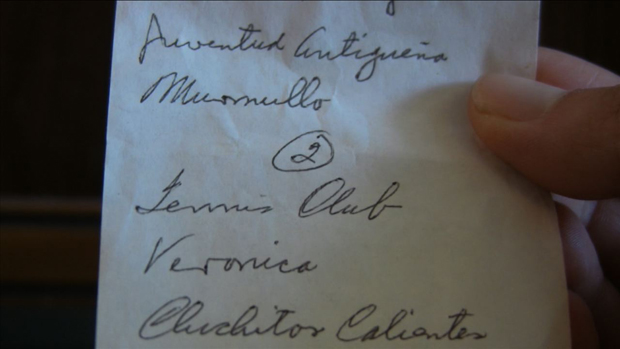 Juventud Antigueña
Murmullo
2
Tennis Club
Veronica
Chuchitos Calientes